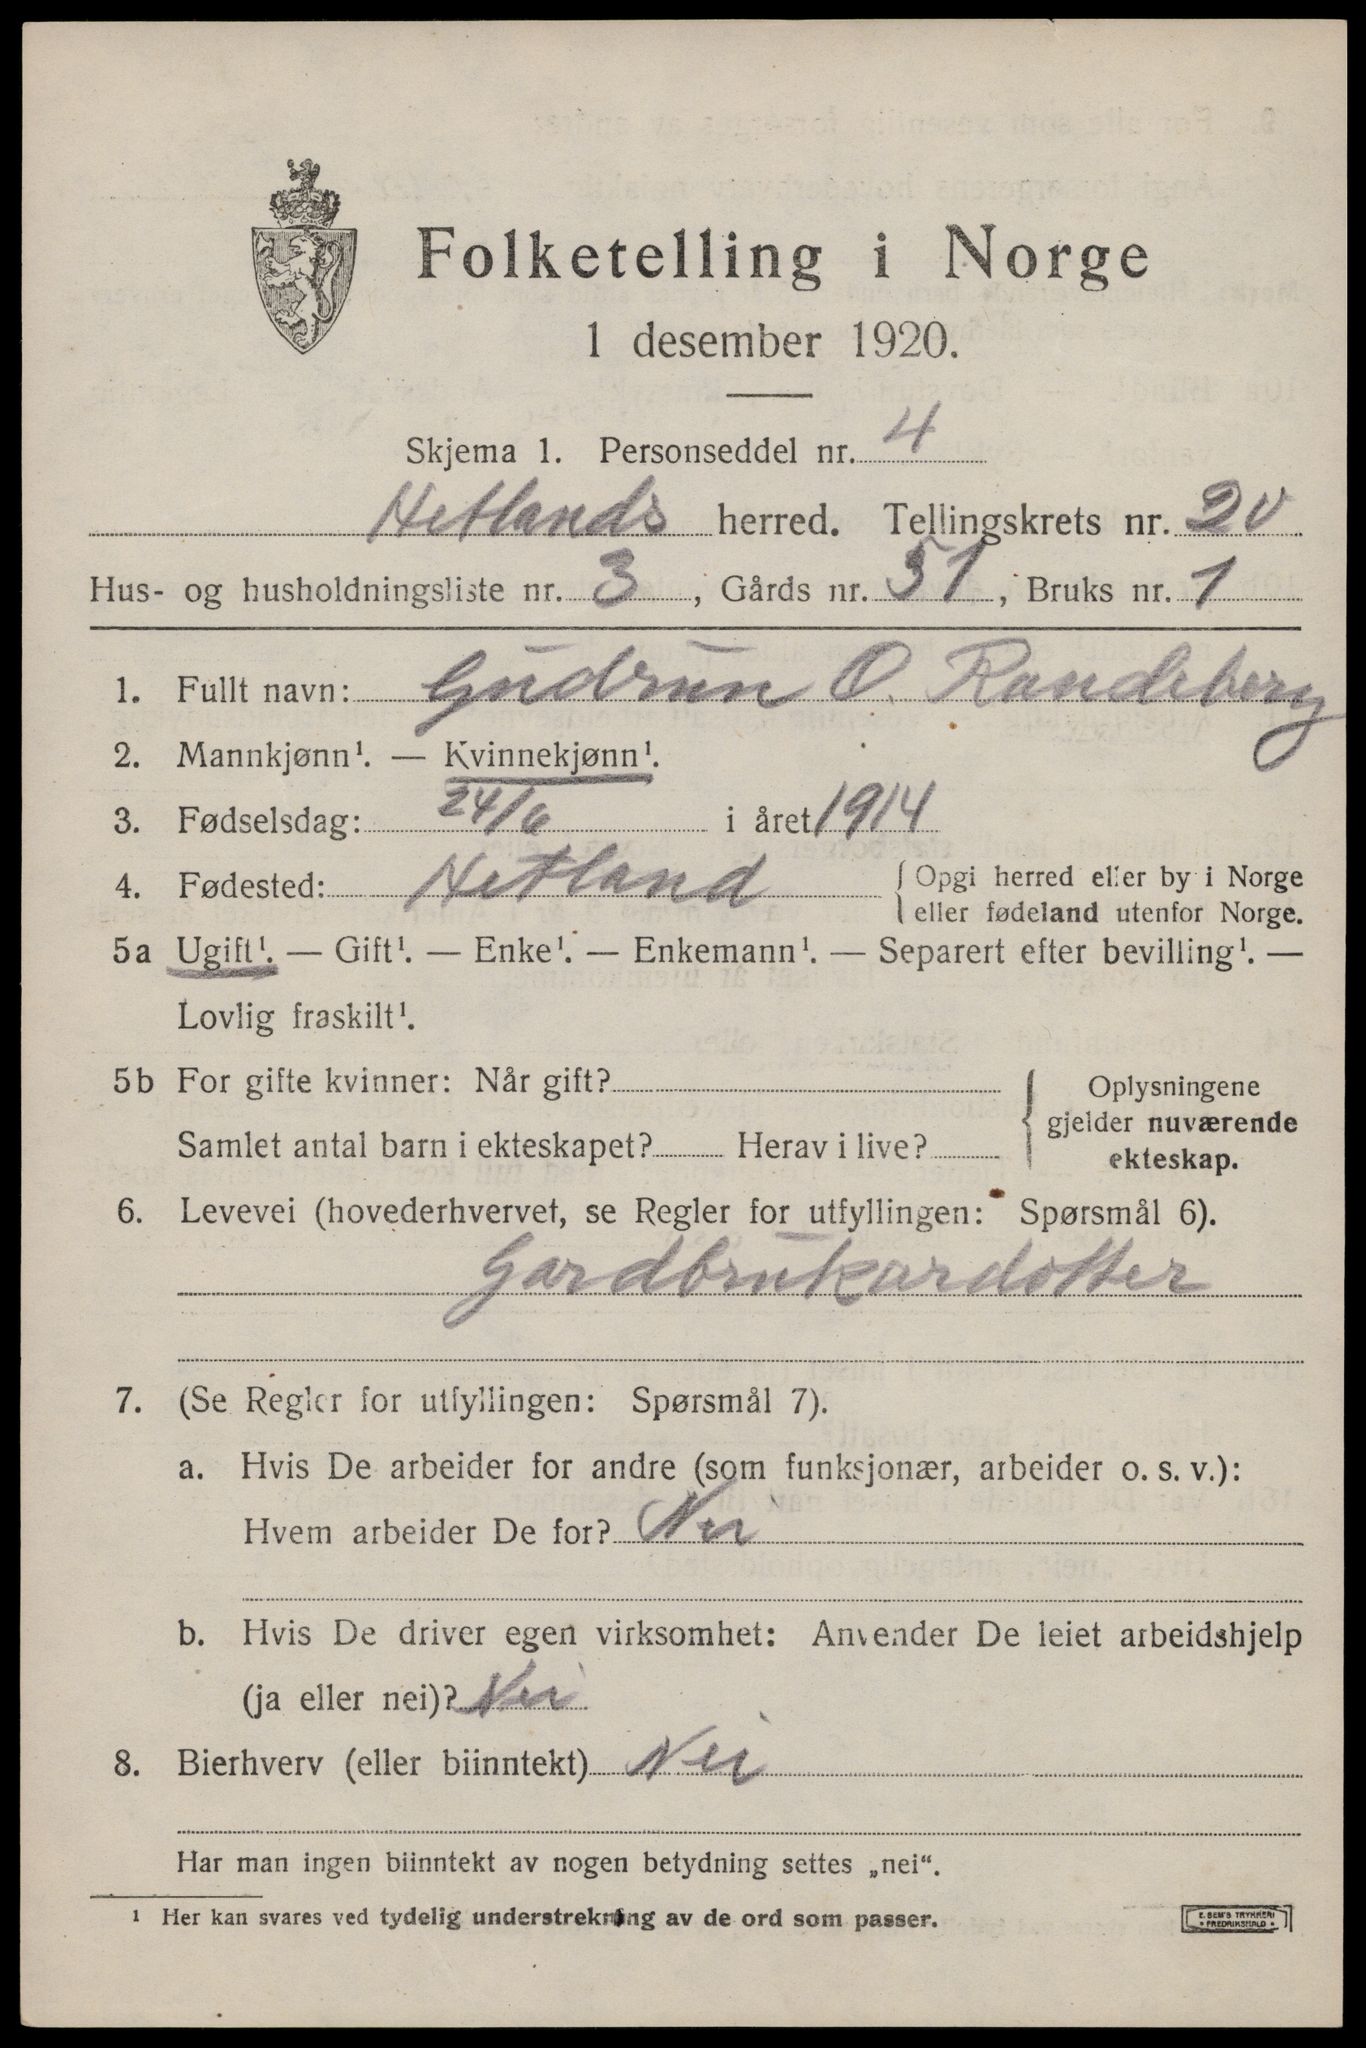 Folketelling i Norge
1 desember 1920.
Skjema 1. Personseddel nr. 4
Hetlands herred. Tellingskrets nr. 20
Hus- og husholdningsliste nr. 3, Gårds nr. 51, Bruks nr. 1
1. Fullt navn: Gudrun O. Randeberg
2. Mannkjønn¹. — Kvinnekjønn¹.
3. Fødselsdag: 24/6 i året 1914
4. Fødested: Hetland { Opgi herred eller by i Norge
eller fødeland utenfor Norge.
5a Ugift¹. — Gift¹. — Enke¹. — Enkemann¹. — Separert efter bevilling¹. —
Lovlig fraskilt¹.
5b For gifte kvinner: Når gift?
Samlet antal barn i ekteskapet? Herav i live?
{ Oplysningene
gjelder nuværende
ekteskap.
6. Levevei (hovederhvervet, se Regler for utfyllingen: Spørsmål 6).
Gardbrukardotter
7. (Se Regler for utfyllingen: Spørsmål 7).
a. Hvis De arbeider for andre (som funksjonær, arbeider o. s. v.):
Hvem arbeider De for? Nei
b. Hvis De driver egen virksomhet: Anvender De leiet arbeidshjelp
(ja eller nei)? Nei
8. Bierhverv (eller biinntekt) Nei
Har man ingen biinntekt av nogen betydning settes „nei“.
¹ Her kan svares ved tydelig understrekning av de ord som passer.
E. SEM'S TRYKKERI
• FREDRIKSHALD •